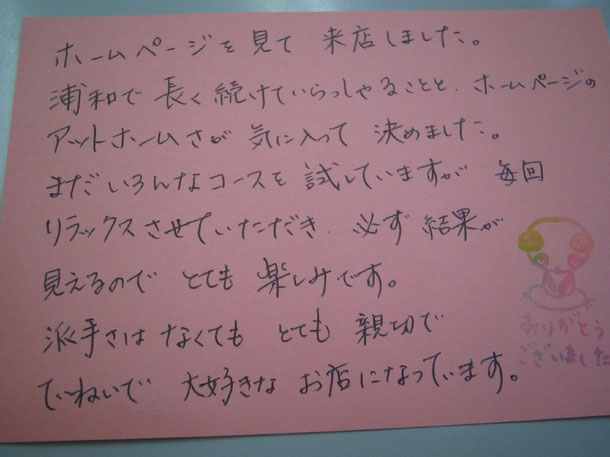 ホームページを見て 来店しました。
浦和で 長く 続けていらっしゃることと、ホームページの
アットホームさが 気に入って 決めました。
まだいろんなコースを 試していますが 毎回
リラックスさせていただき、必ず 結果が
見えるので とても 楽しみです。
派手さは なくても とても 親切で
ていねいで 大好きな お店になっています。
ありがとう
ございました